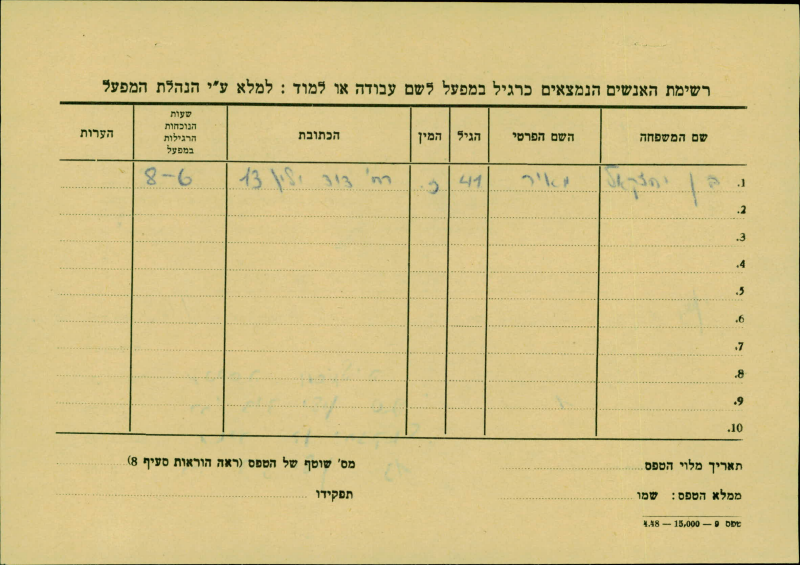 רשימת האנשים הנמצאים כרגיל במפעל לשם עבודה או למוד : למלא ע״י הנהלת המפעל
שם המשפחה השם הפרטי הגיל המין הכתובת שעות הנוכחות הרגילות במפעל הערות
1. בן יחזקאל מאיר 41 ז. רח' דוד ילין 13 8-6
2.
3.
4.
5.
6.
7.
8.
9.
10.
תאריך מלוי הטפס מס' שוטף של הטפס (ראה הוראות סעיף 8)
ממלא הטפס : שמו תפקידו
טפס 9 — 15,000 — 4.48